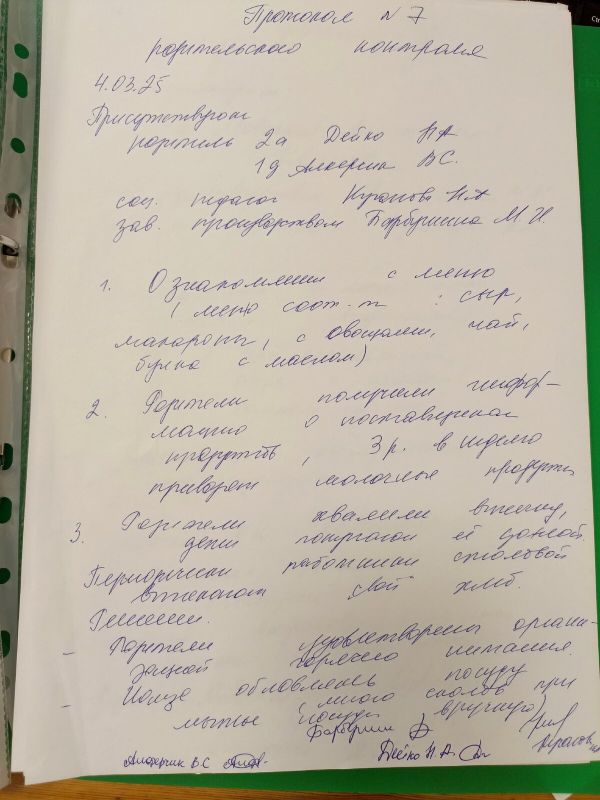 Протокол N 7
родительского контроля
4.03.25
Присутствуют
родитель 2а Дейко НА
1д Алферчик ВС.
соц. педагог НА
зав. производством Барбушина М.И.
1. Ознакомлении с меню
( меню соот-т : сыр,
макароны, с овощами, чай,
булка с маслом)
2. Родители получили инфор-
мацию о поставщиках
продуктов, 3 р. в неделю
привозят молочные продукты
3. Родители хвалили выпечку,
дети покупают её домой.
Периодически работники столовой
выпекают свой хлеб.
Решении.
- Родители удовлетворены органи-
зацией горячего питания.
- обновлять посуду
(много сколов при
мытье посуды вручную)
Алферчик ВС
Дейко Н.А.